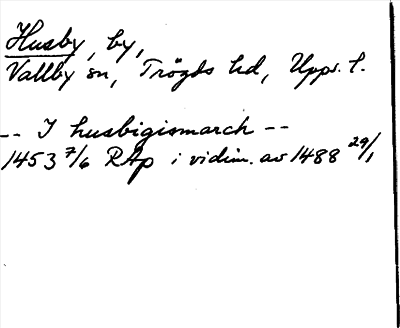 Husby, by,
Vallby sn, Trögds hd, Upps. l.
-- I husbigismarch --
1453 7/6 RAp i vidim. av 1488 29/1